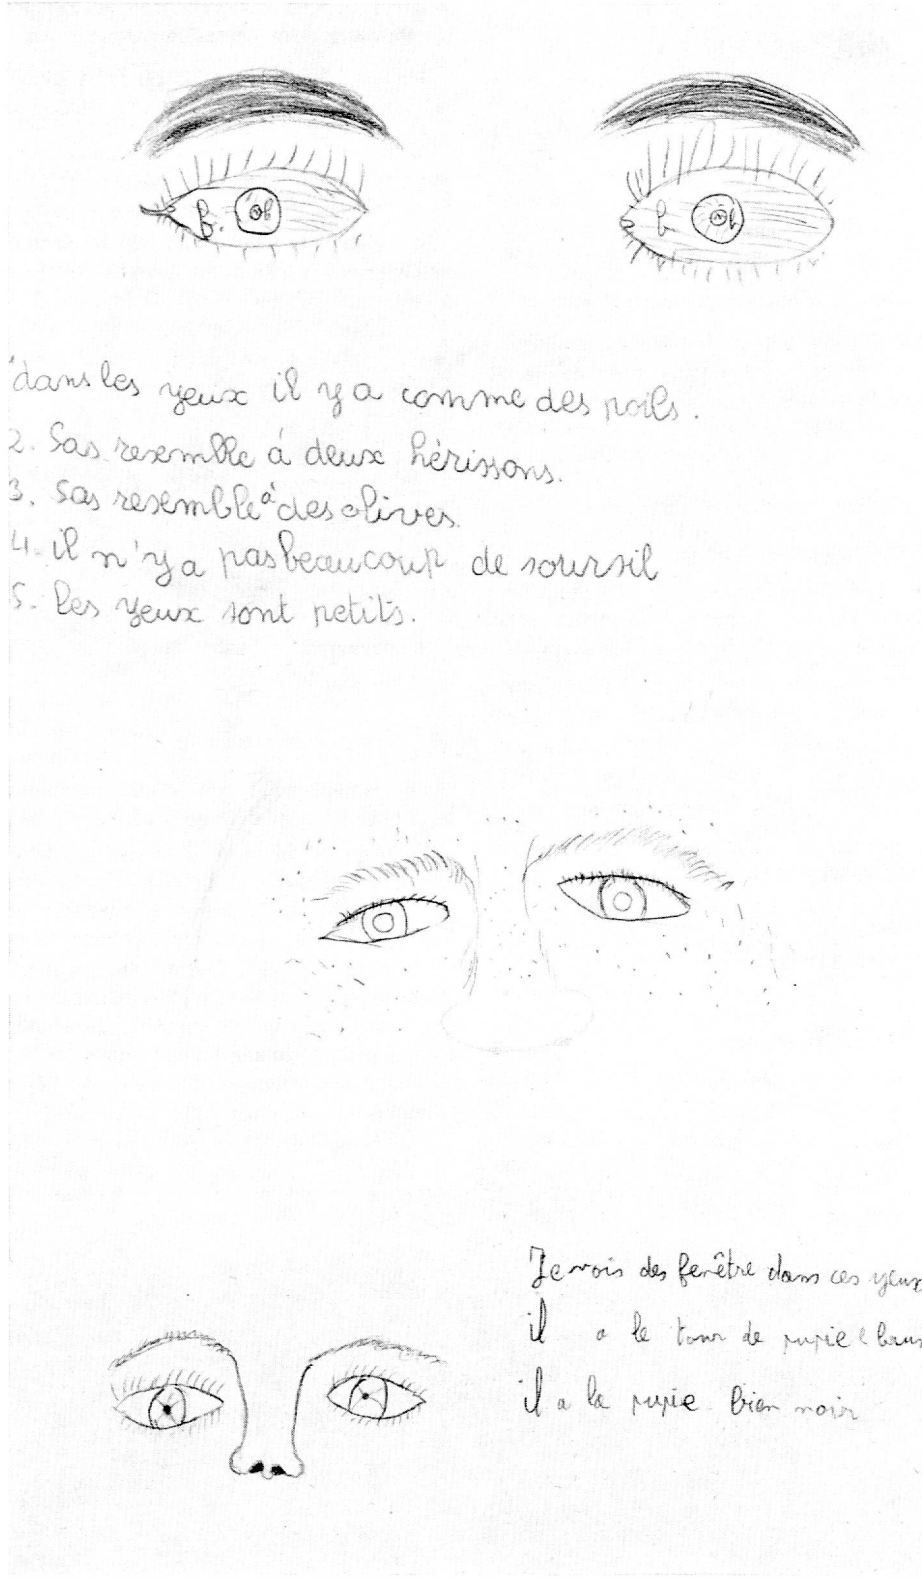 b. ob
b ob
dans les yeux il y a comme des poils.
2. Sas resemble à deux hérissons.
3. Sas resemble à des olives.
4. il n'y a pas beaucoup de soursil
5. les yeux sont petits.
Je vois des fenêtre dans ces yeux
il a le tour de pupie
il a la pupie bien noir